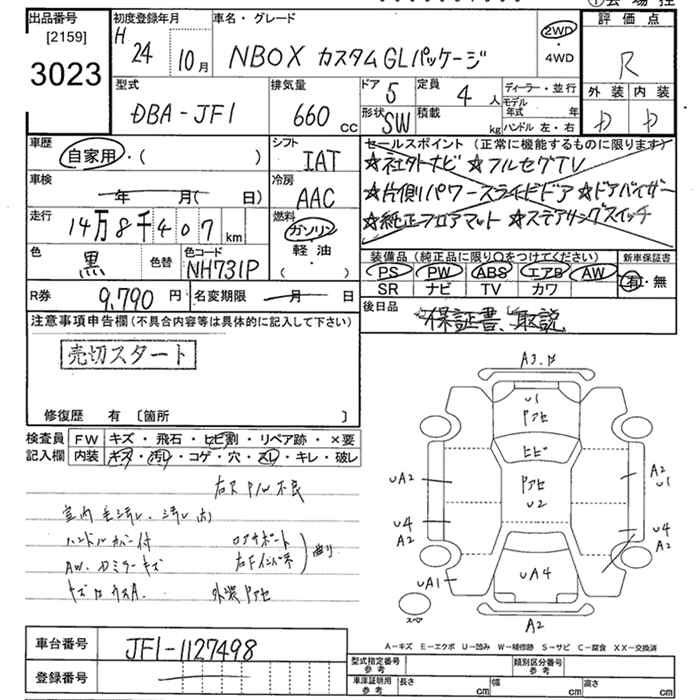 出品番号
[2159]
3023
初度登録年月
H 24 10月
車名・グレード
NBOX カスタムGLパッケージ
2WD
・
4WD
評価点
R
外装 内装
D D
型式
DBA-JF1
排気量
660 cc
ドア 5
定員 4 人
形状 SW
積載 kg
ディーラー・並行
モデル年式 年
ハンドル 左・右
車歴
自家用・( )
シフト
IAT
セールスポイント (正常に機能するものに限ります)
☆社外ナビ ☆フルセグTV
☆片側パワースライドドア ☆ドアバイザー
☆純正フロアマット ☆ステアリングスイッチ
車検
年 月( 日)
冷房
AAC
走行
14万8千407km
燃料
ガソリン
軽油・
( )
色
黒
色替
色コード
NH731P
装備品 (純正品に限り○をつけてください)
PS PW ABS エアB AW
SR ナビ TV カワ
新車保証書
有・無
R券 9,790 円
名変期限 月 日
後日品
☆保証書、取説
注意事項申告欄 (不具合内容等は具体的に記入して下さい)
売切スタート
修復歴 有 〔箇所 〕
検査員 FW キズ・飛石・ヒビ割・リペア跡・×要
記入欄 内装 キズ・汚れ・コゲ・穴・スレ・キレ・破レ
P/W 不良
室内
ハンドルカバー付
AW、Dミラーキズ
曲り
外装
A3
U1
ヒビ
U2
UA2
U4
A2
UA1
A2
U1
U4
A2
UA4
A2
スペア
A－キズ E－エクボ U－凹み W－補修跡 S－サビ C－腐食 XX－交換済
車台番号
JF1-1127498
登録番号
型式指定番号
参考
類別区分番号
参考
車庫証明用
参考
長さ cm 幅 cm 高さ cm